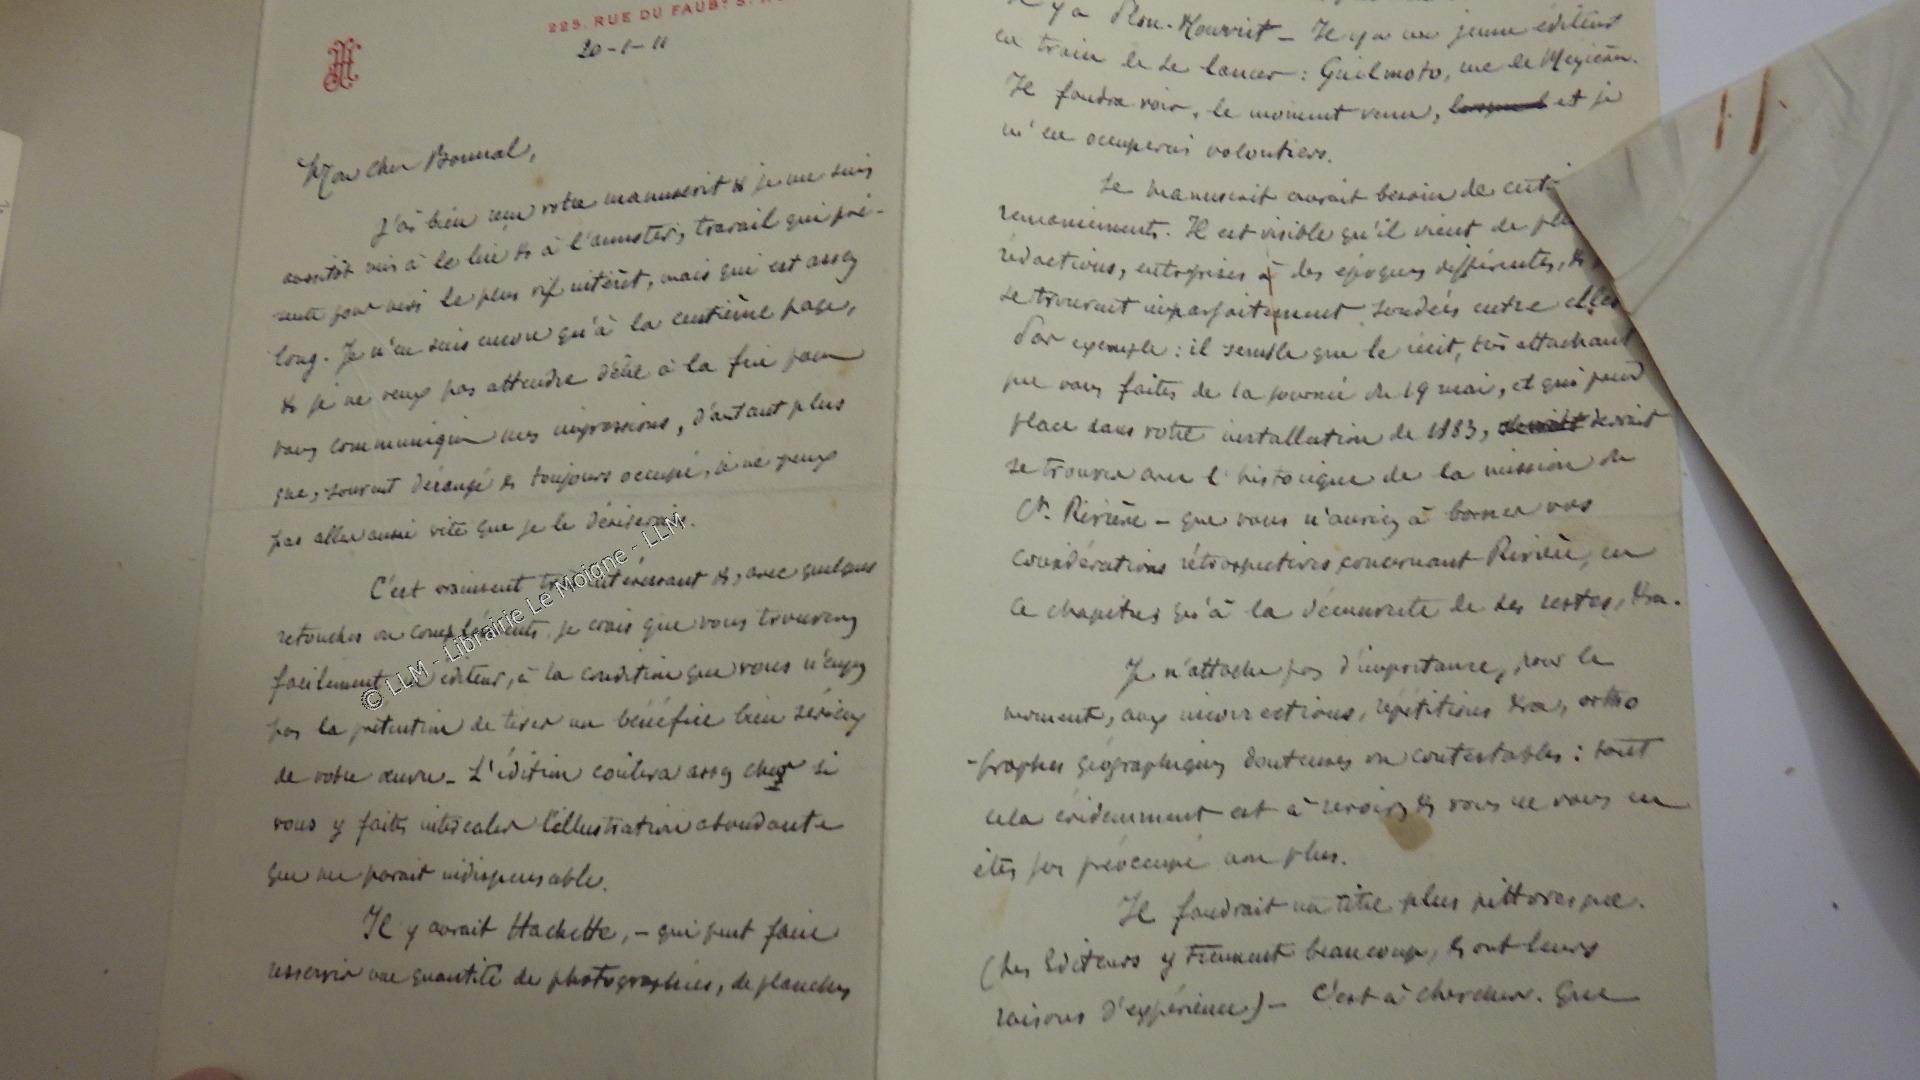 223, RUE DU FAUBG S. H
20-1-11
Mon cher Bonnal,
J'ai bien reçu votre manuscrit & je me suis
aussitôt mis à le lire & à l'annoter, travail qui pré-
sente pour moi le plus vif intérêt, mais qui est assez
long. Je n'en suis encore qu'à la centième page,
& je ne veux pas attendre d'être à la fin pour
vous communiquer mes impressions, d'autant plus
que, souvent dérangé & toujours occupé, je ne peux
pas aller aussi vite que je le désirerais.
C'est vraiment très intéressant &, avec quelques
retouches ou compléments, je crois que vous trouverez
facilement un éditeur, à la condition que vous n'ayez
pas la prétention de tirer un bénéfice bien sérieux
de votre œuvre_ L'édition coûtera assez cher si
vous y faites intercaler l'illustration abondante
que me parait indispensable.
Il y aurait Hachette, – qui peut faire
resservir une quantité de photographies, de planches
Il y a Plon-Nourrit – Il y a un jeune éditeur
en train de se lancer : Guilmoto, rue de Mézières.
Il faudra voir, le moment venu, et je
m'en occuperais volontiers.
Le manuscrit aurait besoin de cert
remaniements. Il est visible qu'il vient de plu
rédactions, entreprises à des époques différentes, &
se trouvant imparfaitement soudées entre elles
Par exemple : il semble que le récit, très attachant
que vous faites de la journée du 19 mai, et qui prend
place dans votre installation de 1883, devrait
se trouver avec l'historique de la mission du
Ct. Rivière – que vous n'auriez à borner vos
considérations rétrospectives concernant Rivière, en
ce chapitre, qu'à la découverte de ses restes, &a.
Je n'attache pas d'importance, pour le
moment, aux incorrections, répétitions &a, ortho
-graphes géographiques douteuses ou contestables : tout
cela évidemment est à revoir, & vous ne vous en
êtes pas préoccupé non plus.
Il faudrait un titre plus pittoresque.
(les Editeurs y tiennent beaucoup, & ont leurs
raisons d'expérience) – C'est à chercher. Que
© LLM - Librairie Le Moigne - LLM